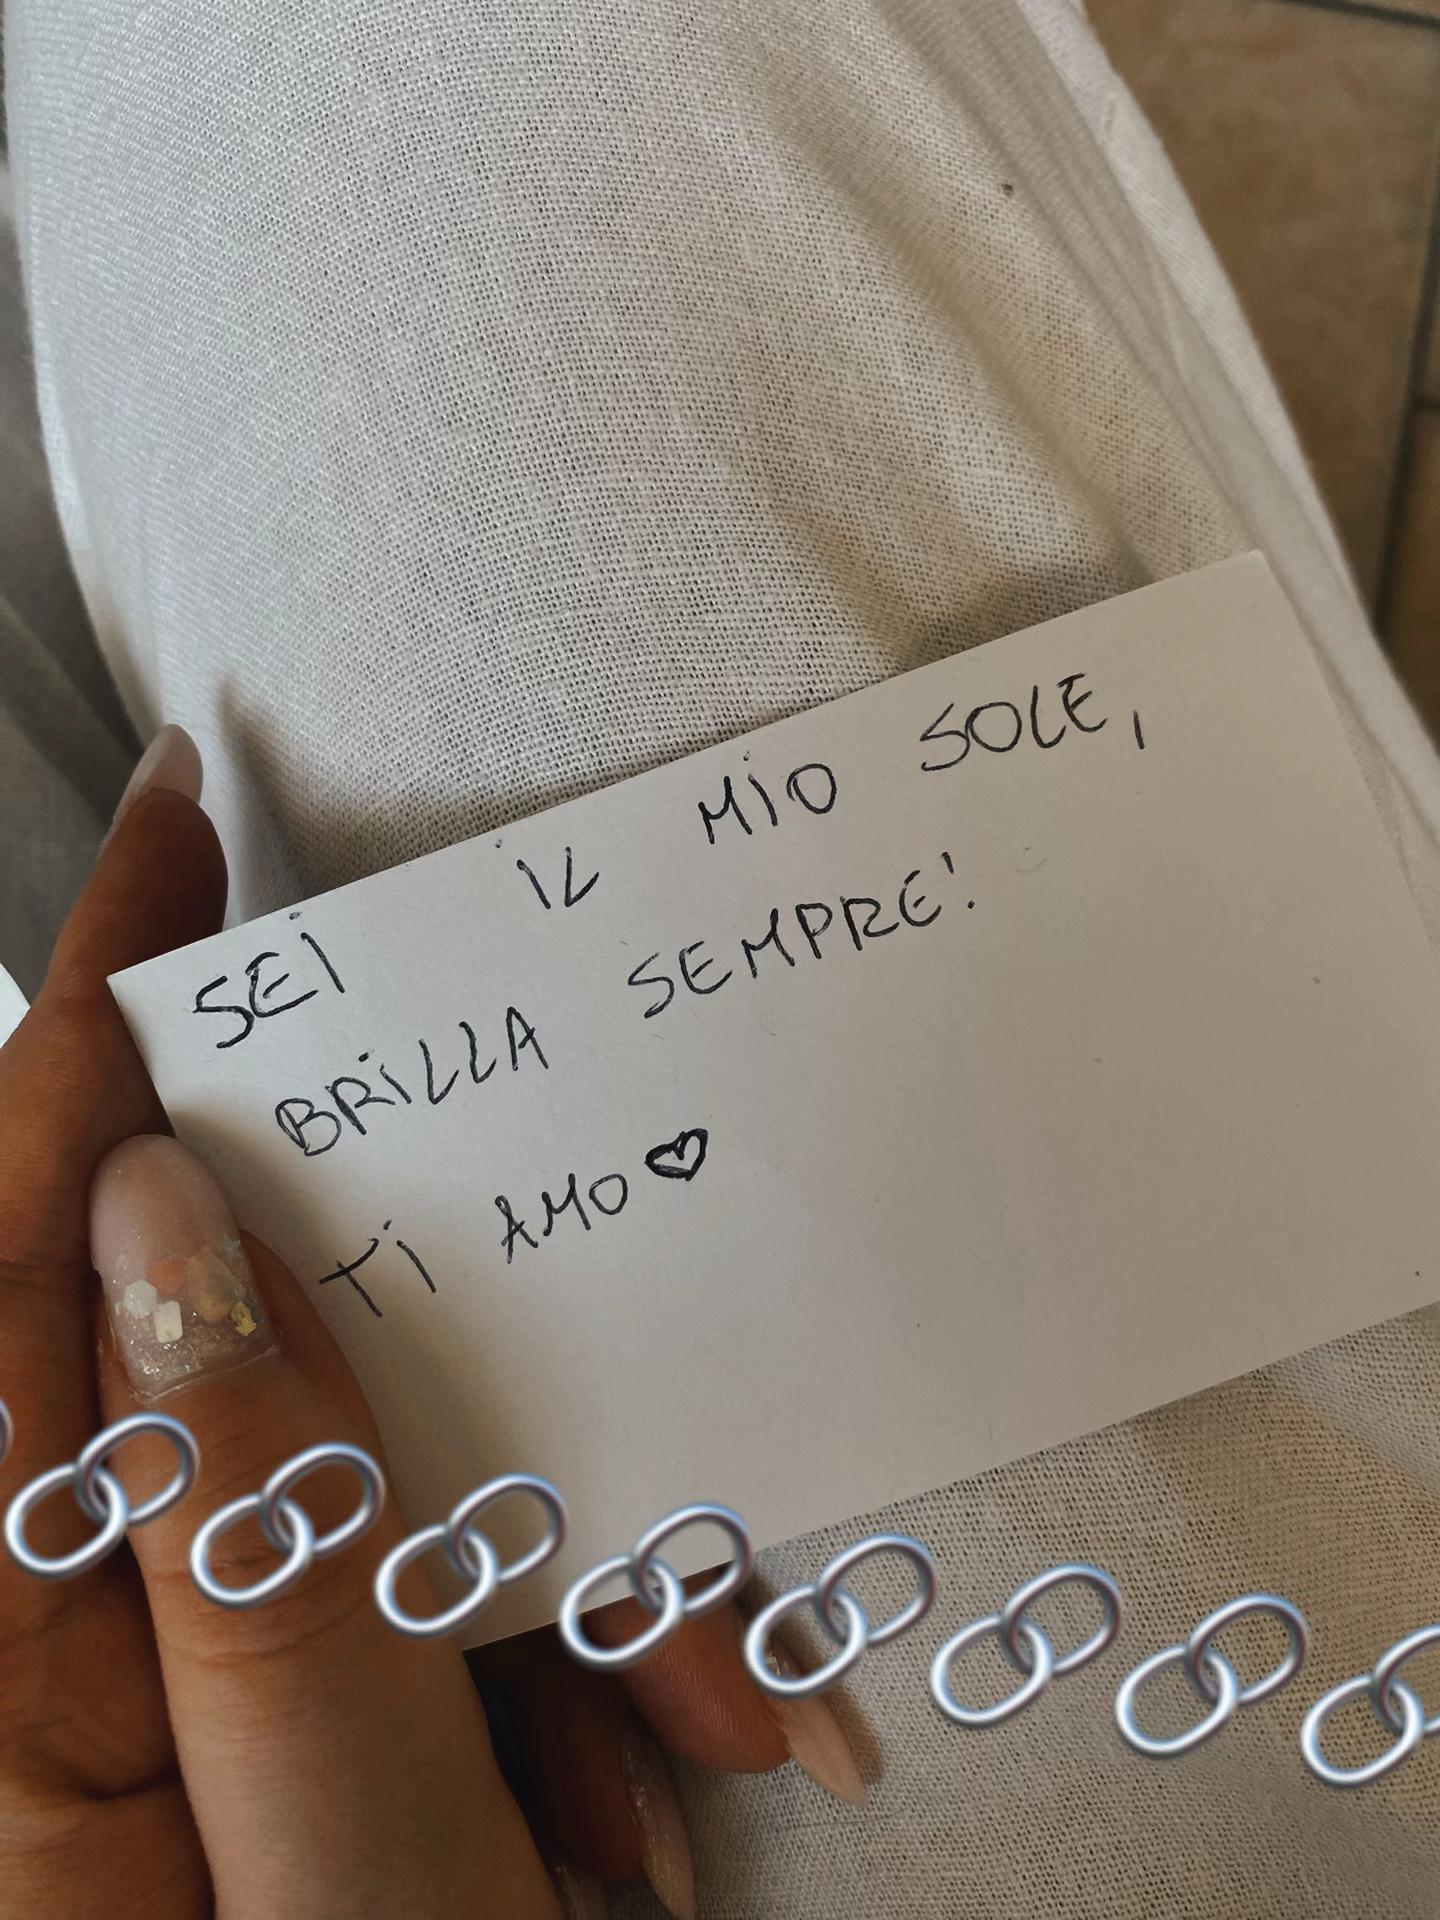 SEI IL MIO SOLE,
BRILLA SEMPRE!
TI AMO♡